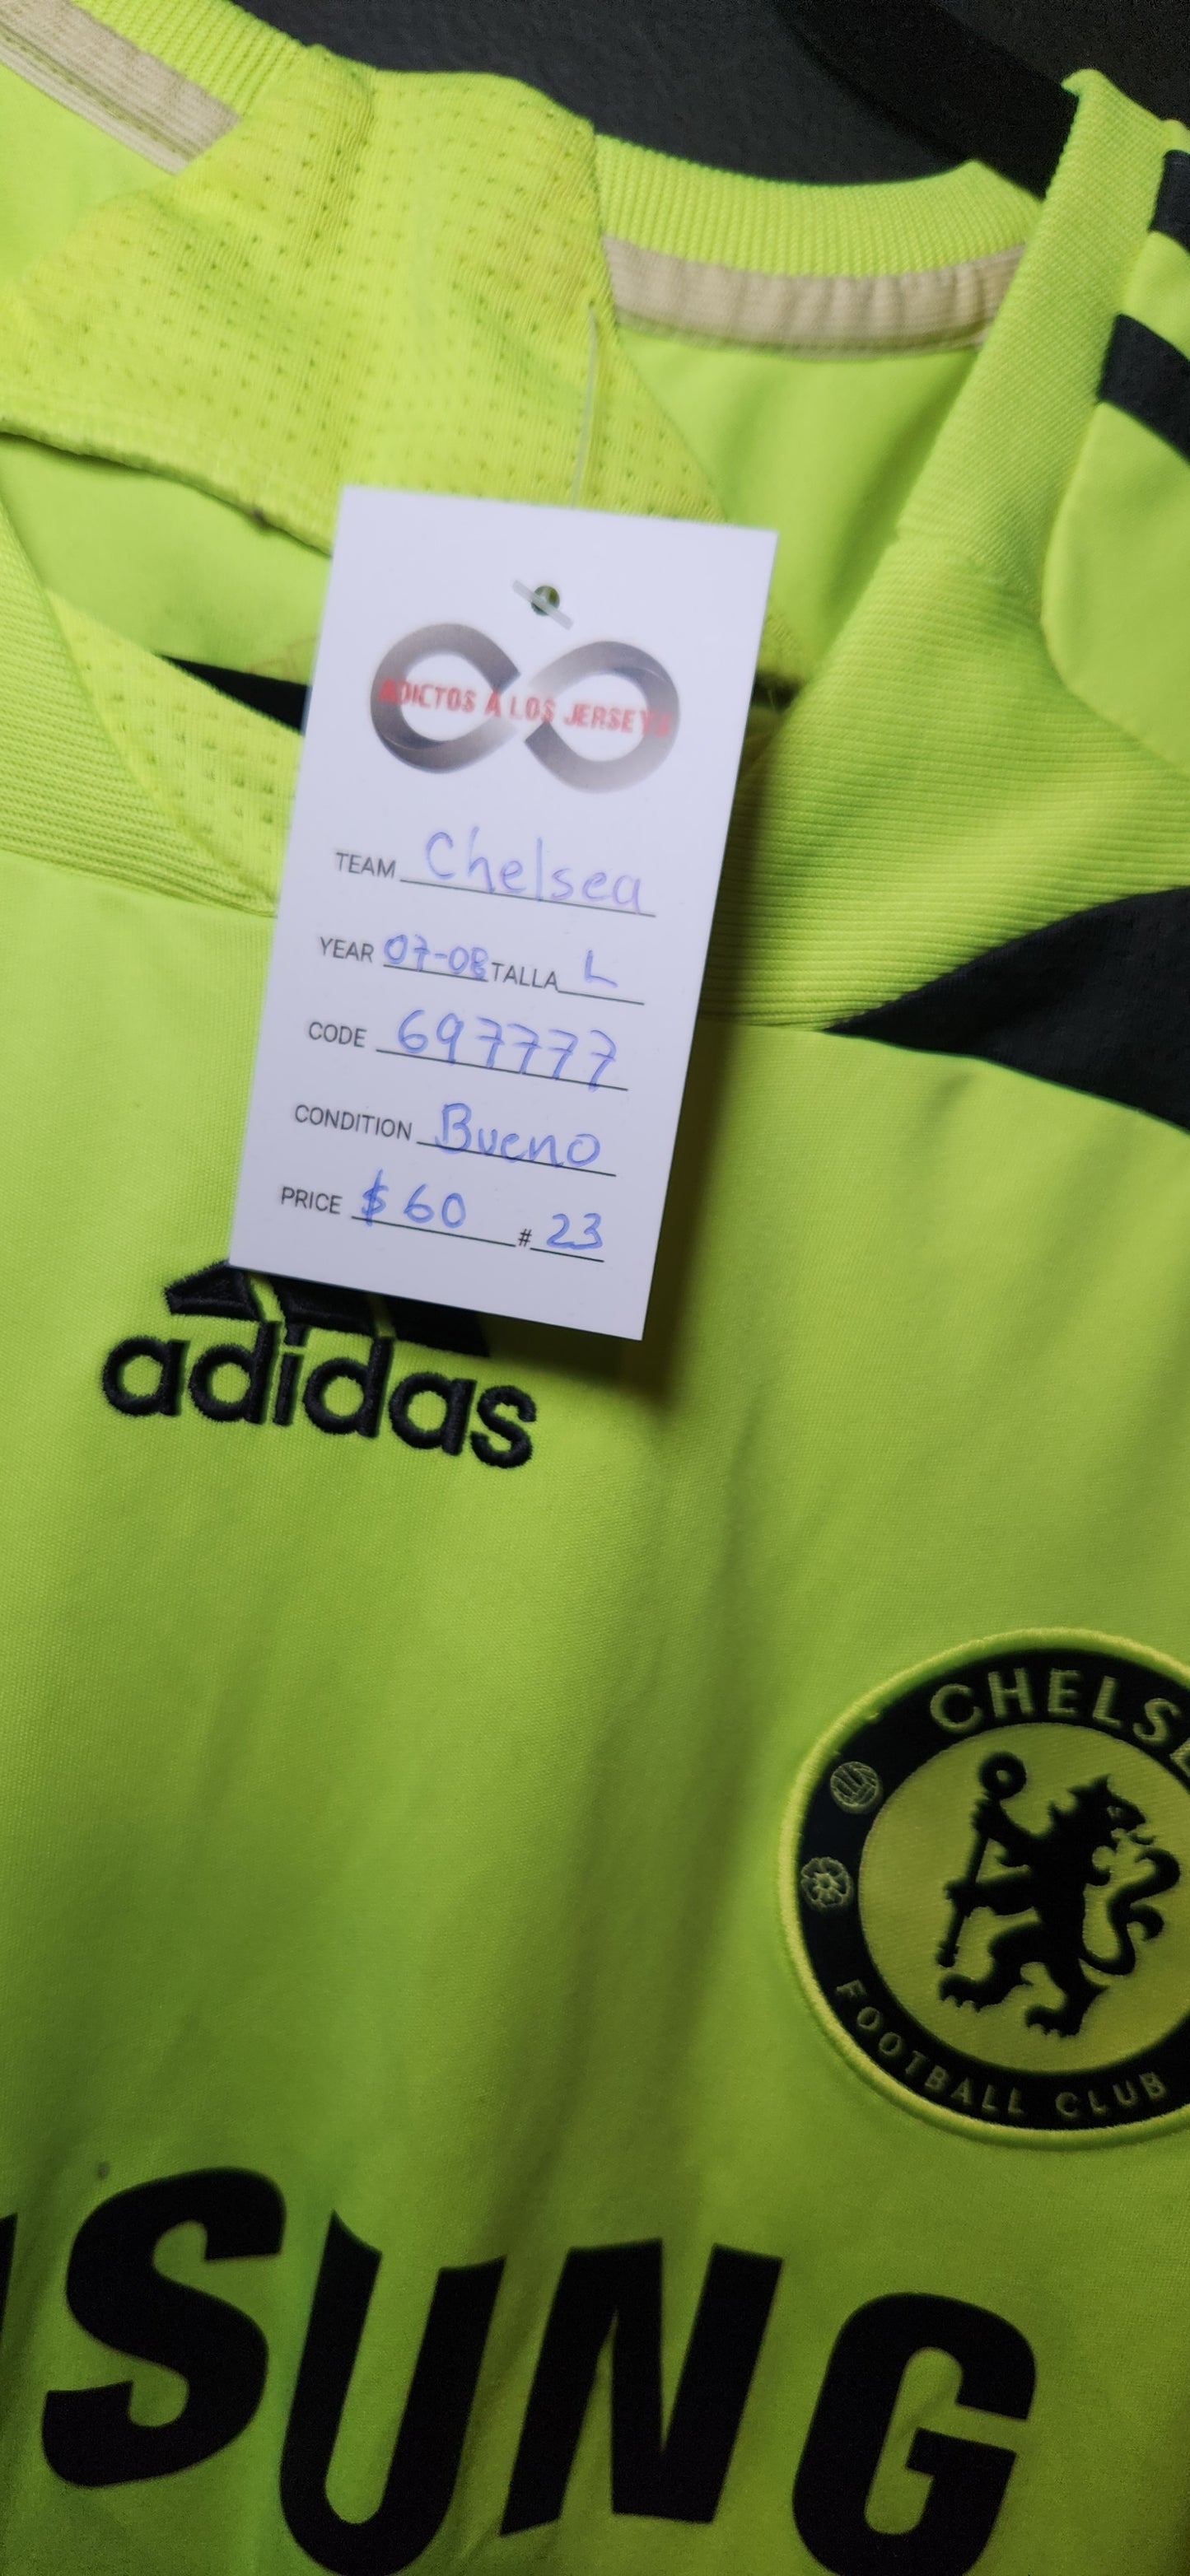 ADICTOS A LOS JERSEYS
TEAM Chelsea
YEAR 07-08 TALLA L
CODE 697777
CONDITION Bueno
PRICE $60 # 23
adidas
CHELSE
FOOTBALL CLUB
SUNG